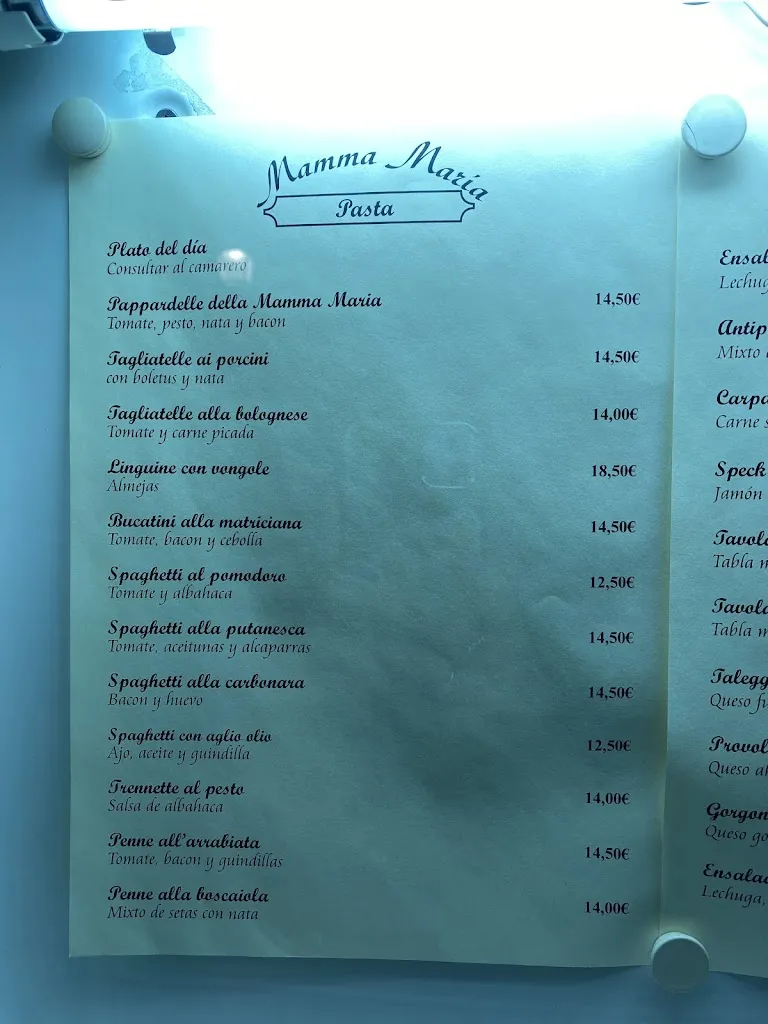 Mamma Maria
Pasta
Plato del día
Consultar al camarero
Pappardelle della Mamma Maria 14,50€
Tomate, pesto, nata y bacon
Tagliatelle ai porcini 14,50€
con boletus y nata
Tagliatelle alla bolognese 14,00€
Tomate y carne picada
Linguine con vongole 18,50€
Almejas
Bucatini alla matriciana 14,50€
Tomate, bacon y cebolla
Spaghetti al pomodoro 12,50€
Tomate y albahaca
Spaghetti alla putanesca 14,50€
Tomate, aceitunas y alcaparras
Spaghetti alla carbonara 14,50€
Bacon y huevo
Spaghetti con aglio olio 12,50€
Ajo, aceite y guindilla
Trennette al pesto 14,00€
Salsa de albahaca
Penne all'arrabiata 14,50€
Tomate, bacon y guindillas
Penne alla boscaiola 14,00€
Mixto de setas con nata
Mixto
Carne s
Speck
Jamón
Tabla m
Tabla m
Queso
Queso
Queso go